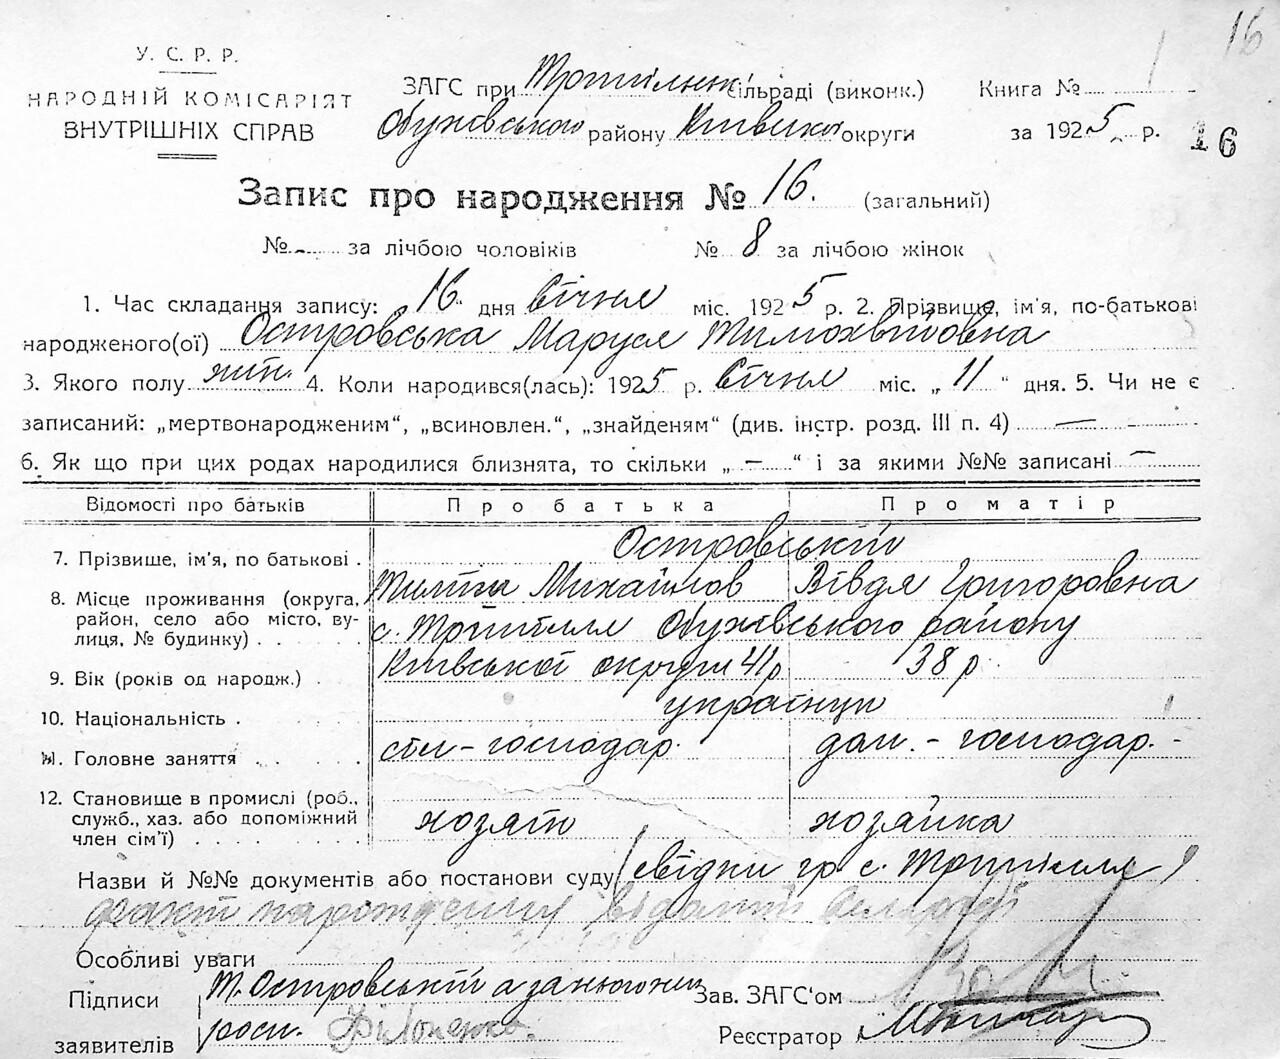 16
У. С. Р. Р.
НАРОДНІЙ КОМІСАРІЯТ
ВНУТРІШНІХ СПРАВ
ЗАГС при Трипільск сільраді (виконк.) Книга №
Обухівського району Київської округи за 1925 р. 16
Запис про народження № 16. (загальний)
№ за лічбою чоловіків № 8 за лічбою жінок
1. Час складання запису: 16 дня Січня міс. 1925 р. 2. Прізвище, ім'я, по-батькові
народженого(ої) Островська Маруся
3. Якого полу жін. 4. Коли народився(лась): 1925 р. Січня міс. „ 11 “ дня. 5. Чи не є
записаний: „мертвонародженим“, „всиновлен.“, „знайденям“ (див. інстр. розд. III п. 4) —
6. Як що при цих родах народилися близнята, то скільки „ — “ і за якими №№ записані —
Відомості про батьків Про батька Про матір
7. Прізвище, ім'я, по батькові . Островській
Михайлов Вівдя Григоровна
8. Місце проживання (округа, район, село або місто, вулиця, № будинку) . .
с. Трипілля Обухівського району
Київської округи
9. Вік (років од народж.) . 41 р 38 р.
10. Національність . українци
11. Головне заняття . . . сіл – господар. дом. – господар. -
12. Становище в промислі (роб.,
служб., хаз. або допоміжний
член сім'ї) . . . . . . . . хозяїн хозяйка
Назви й №№ документів або постанови суду (свідки гр с. Трипілля)
факт народження
Особливі уваги
Підписи Т. Островській а за
заявителів роси. Філоненко.
Зав. ЗАГС'ом
Реєстратор